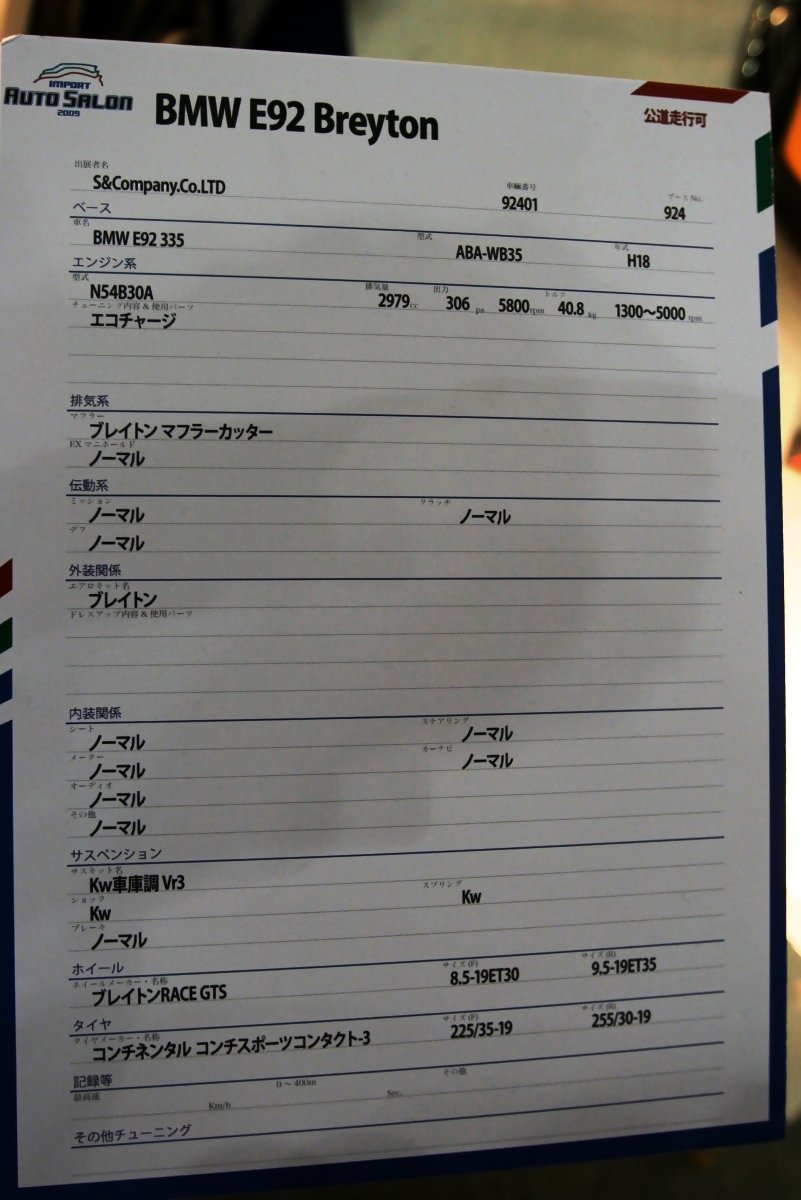 IMPORT
AUTO SALON
2009
BMW E92 Breyton
公道走行可
出展者名
S&Company.Co.LTD
車輌番号
92401
ブース No.
924
ベース
車名
BMW E92 335
型式
ABA-WB35
年式
H18
エンジン系
型式
N54B30A
排気量
2979cc
出力
306 ps 5800rpm
トルク
40.8 kg 1300〜5000 rpm
チューニング内容 & 使用パーツ
エコチャージ
排気系
マフラー
ブレイトン マフラーカッター
EX マニホールド
ノーマル
伝動系
ミッション
ノーマル
クラッチ
ノーマル
デフ
ノーマル
外装関係
エアロキット名
ブレイトン
ドレスアップ内容 & 使用パーツ
内装関係
シート
ノーマル
ステアリング
ノーマル
メーター
ノーマル
カーナビ
ノーマル
オーディオ
ノーマル
その他
ノーマル
サスペンション
サスキット名
Kw車庫調 Vr3
ショック
Kw
スプリング
Kw
ブレーキ
ノーマル
ホイール
ホイールメーカー・名称
ブレイトンRACE GTS
サイズ (F)
8.5-19ET30
サイズ (R)
9.5-19ET35
タイヤ
タイヤメーカー・名称
コンチネンタル コンチスポーツコンタクト-3
サイズ (F)
225/35-19
サイズ (R)
255/30-19
記録等
最高速
Km/h
0 〜 400m
Sec.
その他
その他チューニング